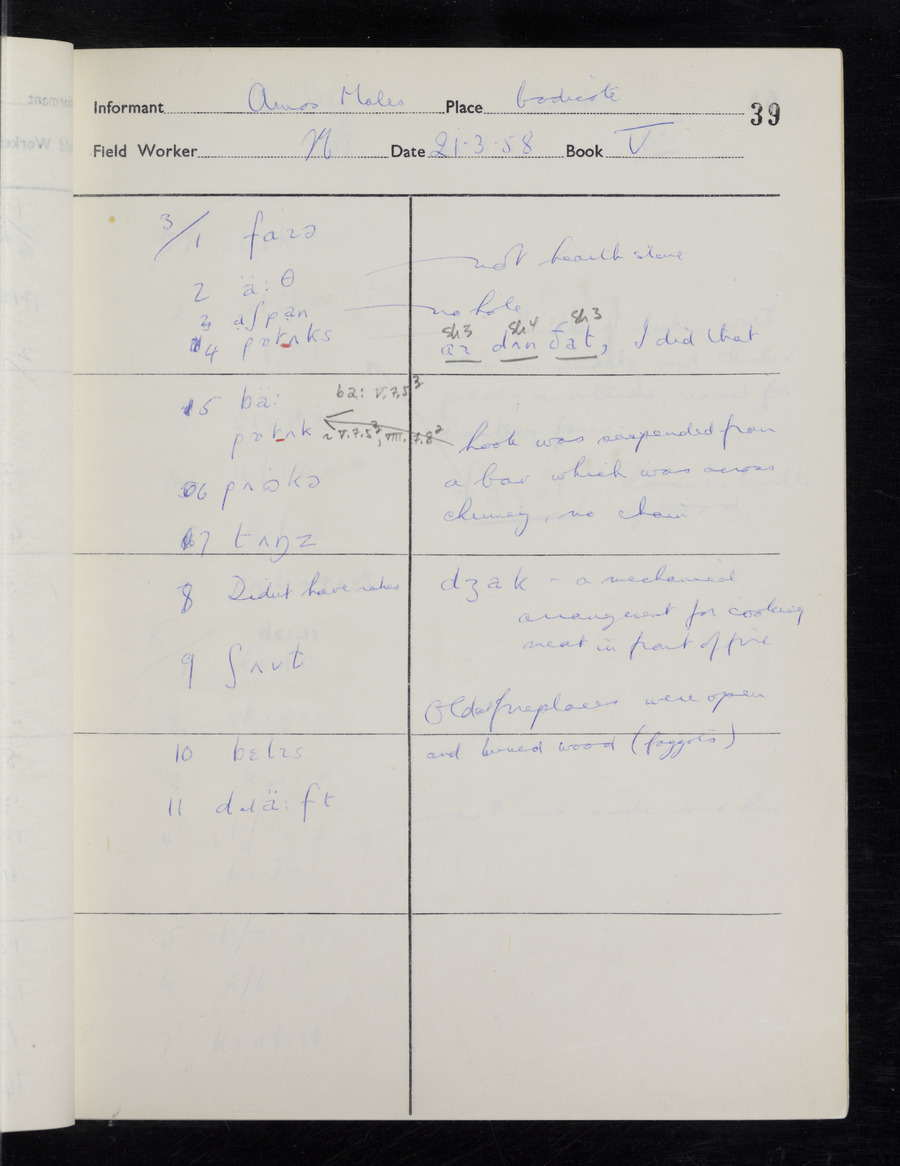 Informant Amos Males Place Bodicote 39
Field Worker N Date 21·3·58 Book V
3/1 faɪə
2 ä:θ not hearth stone
3 aʃpan no hole
4 pɒtʌks sh3 sh4 sh3 dɪn ðat, I did that
5 bä: ba: V.7.5²
pɒtʌk ~ V.7.5², VIII.7.8² hook was suspended from
a bar which was across
6 pʌɒkə
chimney, no chain
7 tʌŋz
8 Didnt have rakes dʒak - a mechanical
arrangement for cooking
meat in front of fire
9 ʃʌvt
Older fireplaces were open
10 bɛlɪs and burned wood (faggots)
11 dɹä:ft